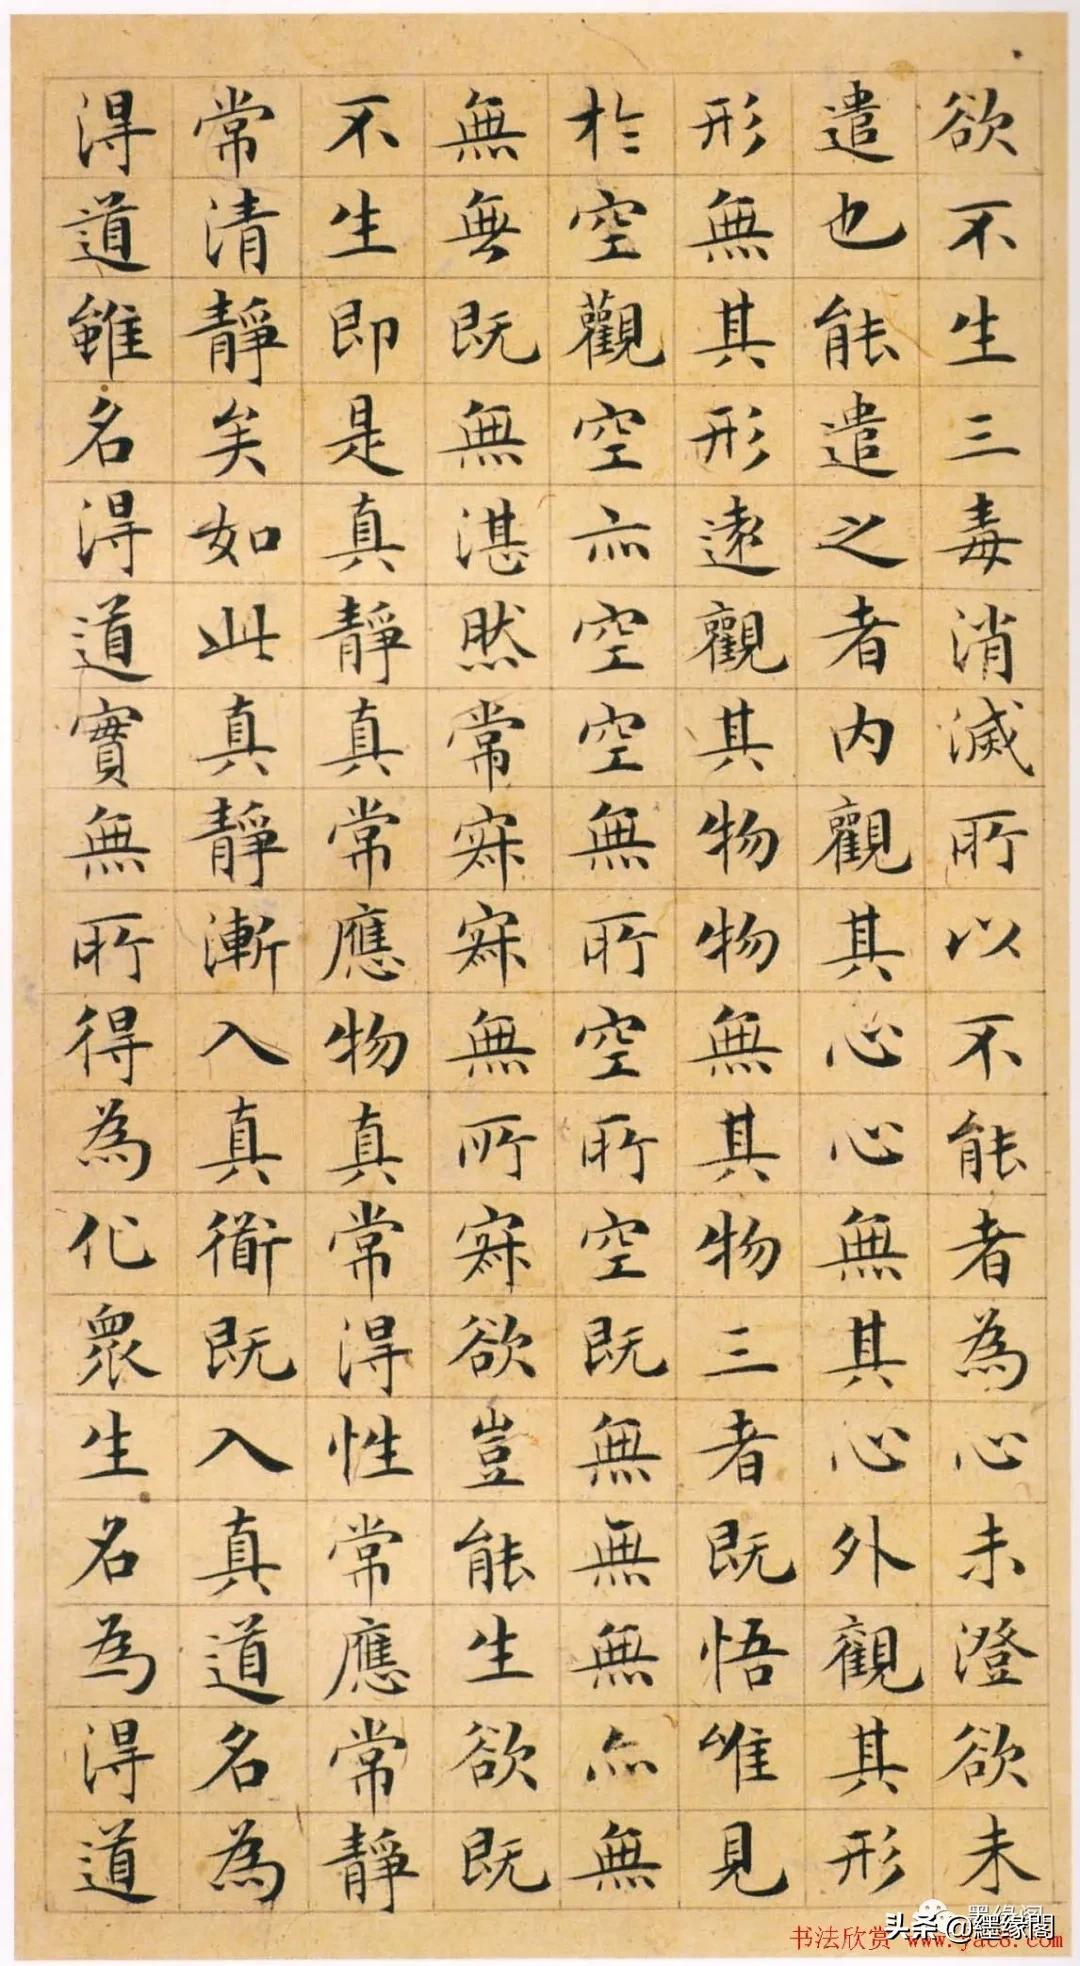 欲不生三毒消滅所以不能者為心未澄欲未
遣也能遣之者内觀其心心無其心外觀其形
形無其形遠觀其物物無其物三者既悟唯見
於空觀空亦空空無所空所空既無無無亦無
無無既無湛然常寂寂無所寂欲豈能生欲既
不生即是真靜真常應物真常得性常應常靜
常清靜矣如此真靜漸入真衜既入真道名為
得道雖名得道實無所得為化眾生名為得道
头条 @纆缘閣
书法欣赏 www.yac8.com